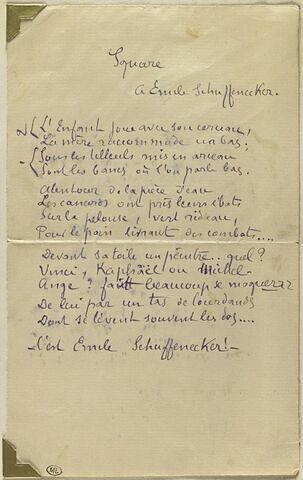 Square
A Emile Schuffenecker.
L'Enfant joue avec son cerceau,
La mère raccommode un bas;
Sous les tilleuls mis en arceau
Sont les bancs où l'on parle bas.
Alentour de la pièce d'eau
Les canards ont pris leurs ébats
Sur la pelouse, vert rideau,
Pour le pain livrant des combats....
Devant sa toile un peintre.. quel?
Vinci, Raphaël ou Michel-
Ange? faut beaucoup se moquer
De lui par un tas de lourdauds
Dont se lèvent souvent les dos....
C'est Emile Schuffenecker! -
ML